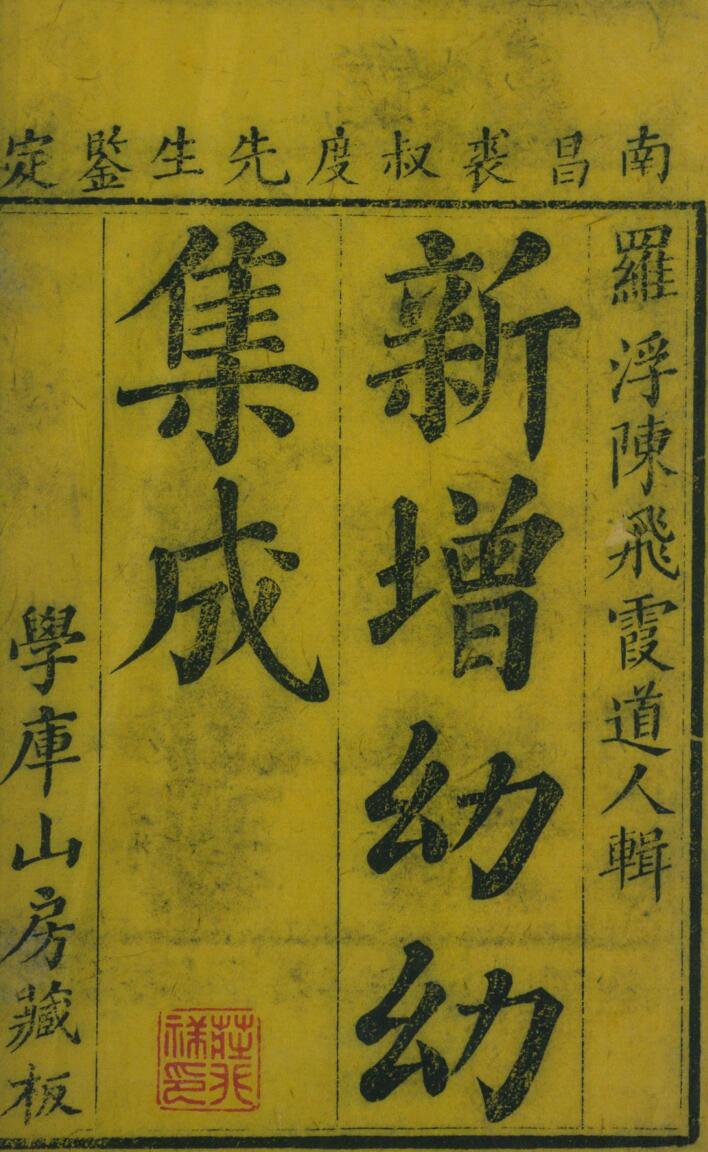 南昌裘叔度先生鑒定
羅浮陳飛霞道人輯
新增幼幼
集成
學庫山房藏板
莊兆祥印